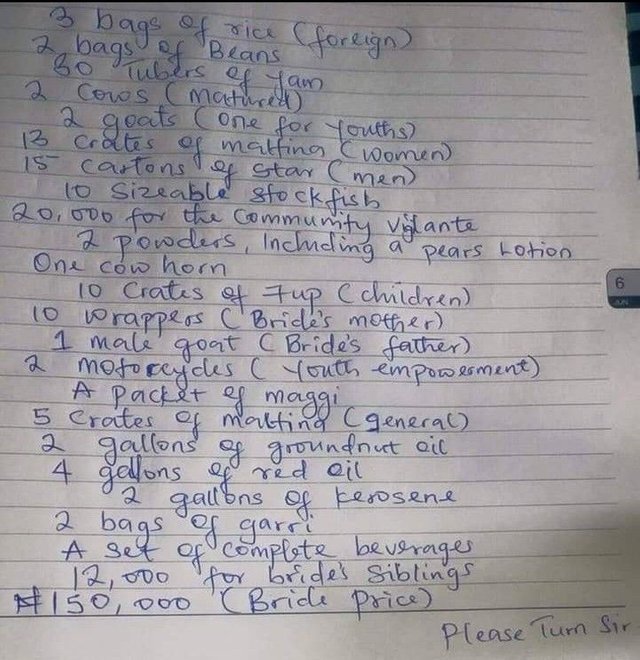 3 bags of rice (foreign)
2 bags of Beans
30 Tubers of Yam
2 Cows (matured)
2 goats (one for Youths)
13 crates of maltina (women)
15 cartons of star (men)
10 Sizeable stockfish
20,000 for the Community Vigilante
2 powders, Including a pears Lotion
One cow horn
10 Crates of 7up (children)
10 Wrappers (Bride's mother)
1 male goat (Bride's father)
2 motorcycles (Youth empowerment)
A Packet of maggi
5 Crates of maltina (general)
2 gallons of groundnut oil
4 gallons of red oil
2 gallons of kerosene
2 bags of garri
A set of complete beverages
12,000 for bride's Siblings
₦150,000 (Bride Price)
Please Turn Sir
6
JUN